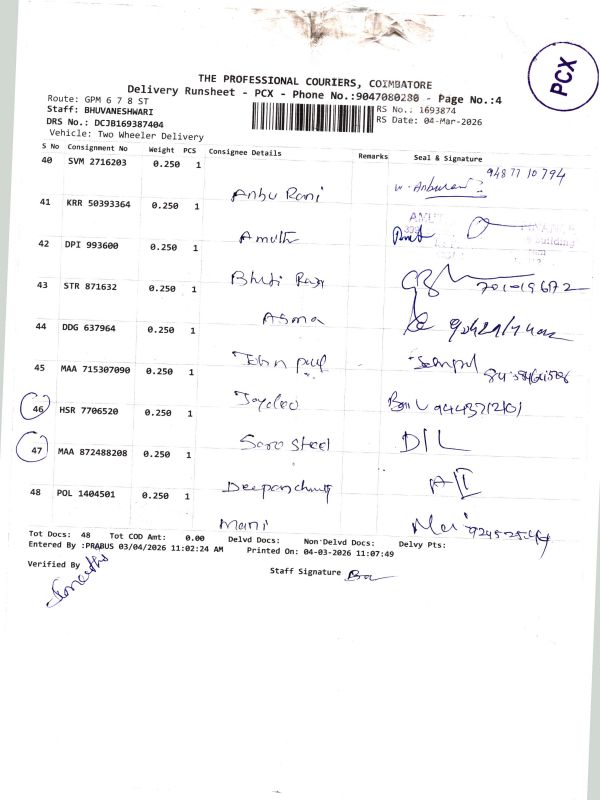 THE PROFESSIONAL COURIERS, COIMBATORE
PCX
Delivery Runsheet - PCX - Phone No.:9047080280 - Page No.:4
Route: GPM 6 7 8 ST
RS No.: 1693874
Staff: BHUVANESHWARI
RS Date: 04-Mar-2026
DRS No.: DCJB169387404
Vehicle: Two Wheeler Delivery
S No Consignment No Weight PCS Consignee Details Remarks Seal & Signature
40 SVM 2716203 0.250 1 Anbu Rani 94877 10794
41 KRR 50393364 0.250 1 Amuth
42 DPI 993600 0.250 1
43 STR 871632 0.250 1 Asma
44 DDG 637964 0.250 1 John paul
45 MAA 715307090 1 0.250 Jaydeo
46 HSR 7706520 0.250 1 Saro steel D/L
47 MAA 872488208 0.250 1
48 POL 1404501 0.250 1 Mani
Tot Docs: 48 Tot COD Amt: 0.00 Delvd Docs: Non Delvd Docs: Delvy Pts:
Entered By :PRABUS 03/04/2026 11:02:24 AM Printed On: 04-03-2026 11:07:49
Verified By
Staff Signature